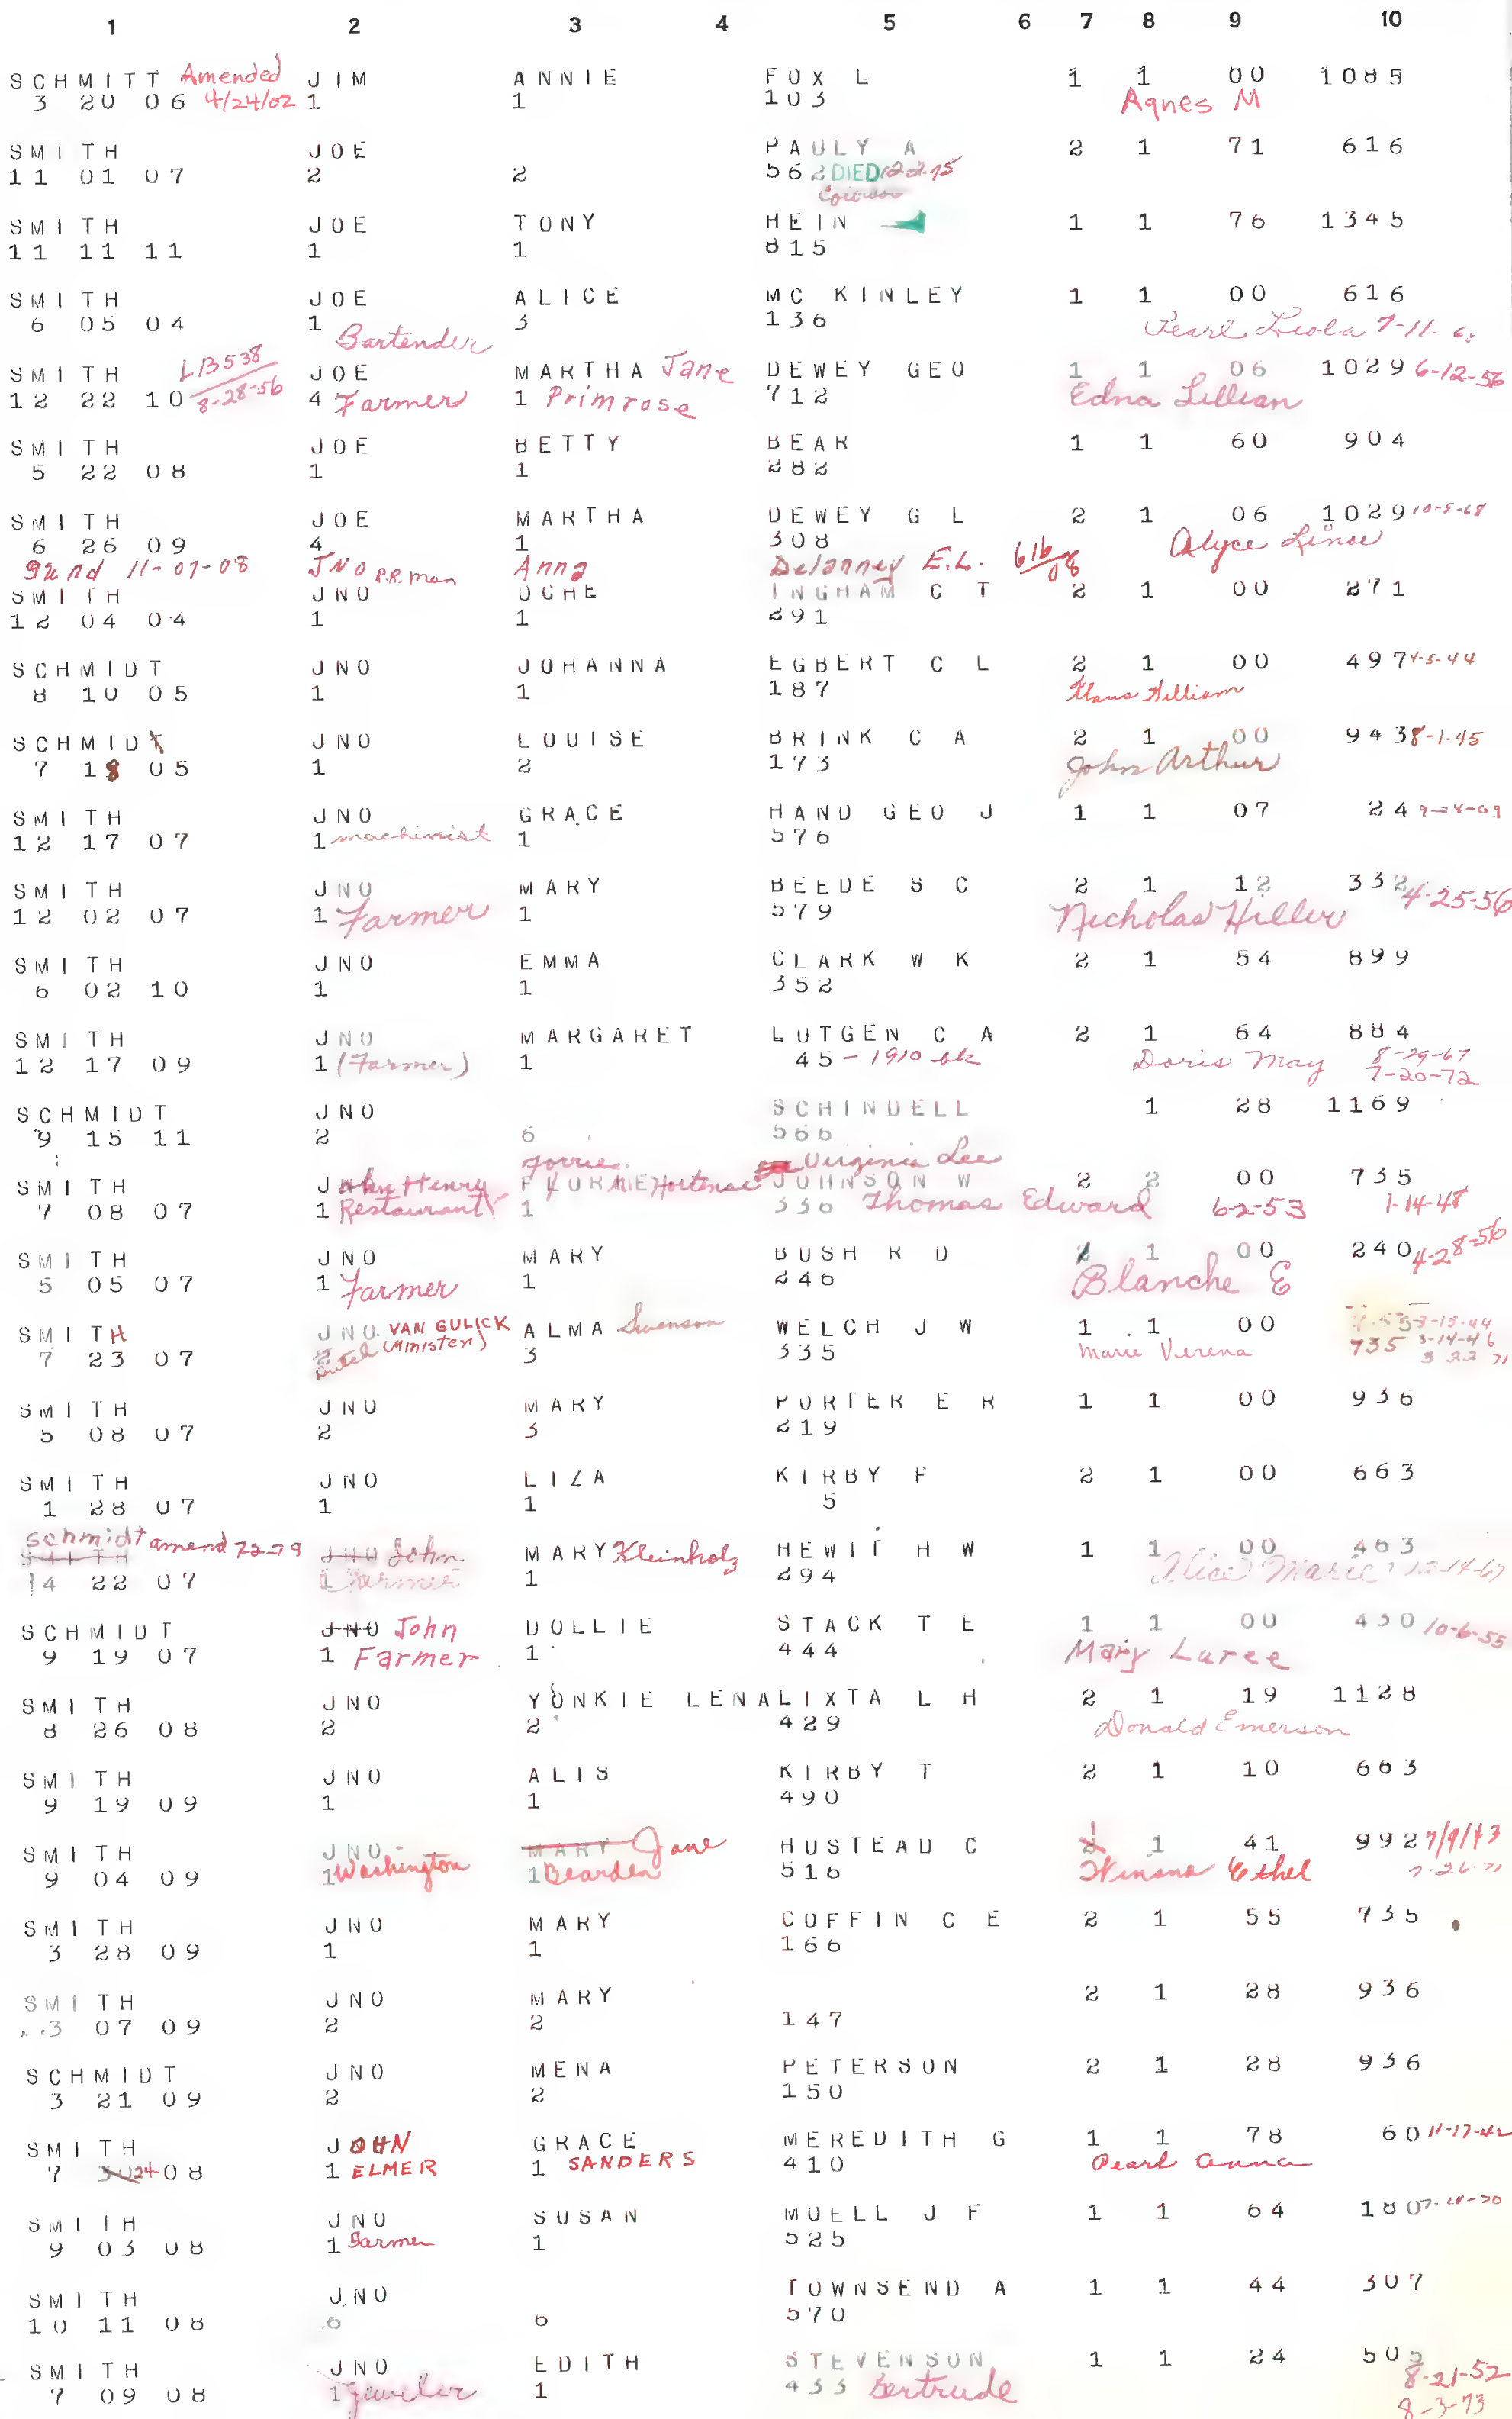 1 2 3 4 5 6 7 8 9 10
SCHMITT Amended JIM ANNIE FOX L 1 1 00 1085
3 20 06 4/24/02 1 1 103 Agnes M
SMITH JOE PAULY A 2 1 71 616
11 01 07 2 2 562 DIED 12-2-75
SMITH JOE TONY HEIN 1 1 76 1345
11 11 11 1 1 815
SMITH JOE ALICE MC KINLEY 1 1 00 616
6 05 04 1 Bartender 3 136 Pearl Leola 7-11-6
SMITH LB538 JOE MARTHA Jane DEWEY GEO 1 1 06 1029 6-12-56
12 22 10 8-28-56 4 Farmer 1 Primrose 712 Edna Lillian
SMITH JOE BETTY BEAR 1 1 60 904
5 22 08 1 1 282
SMITH JOE MARTHA DEWEY G L 2 1 06 1029 10-5-68
6 26 09 4 1 308 Alyce
92nd 11-07-08 JNO R.R. man Anna Delanney E.L. 616/08
SMITH JNO OCHE INGHAM C T 2 1 00 271
12 04 04 1 1 291
SCHMIDT JNO JOHANNA EGBERT C L 2 1 00 497 4-5-44
8 10 05 1 1 187 Klaus William
SCHMIDT JNO LOUISE BRINK C A 2 1 00 943 8-1-45
7 18 05 1 2 173 John Arthur
SMITH JNO GRACE HAND GEO J 1 1 07 24 9-24-69
12 17 07 1 machinist 1 576
SMITH JNO MARY BEEDE S C 2 1 12 332 4-25-56
12 02 07 1 Farmer 1 579 Nicholas Hiller
SMITH JNO EMMA CLARK W K 2 1 54 899
6 02 10 1 1 352
SMITH JNO MARGARET LUTGEN C A 2 1 64 884
12 17 09 1 (Farmer) 1 45 - 1910 bk Doris May 8-29-67
7-20-72
SCHMIDT JNO SCHINDELL 1 28 1169
9 15 11 2 6 566
Virginia Lee
SMITH John Henry FLORME Hortense JOHNSON W 2 2 00 735
7 08 07 1 Restaurant 1 336 Thomas Edward 6-2-53 1-14-48
SMITH JNO MARY BUSH R D 1 00 240 4-28-56
5 05 07 1 Farmer 1 246 Blanche E
SMITH JNO. VAN GULICK ALMA Swenson WELCH J W 1 1 00
7 23 07 2 (Minister) 3 335 Marie Verena 735 3-14-46
3 22 71
SMITH JNO MARY PORTER E R 1 1 00 936
5 08 07 2 3 219
SMITH JNO LIZA KIRBY F 2 1 00 663
1 28 07 1 1 5
Schmidt amend 7-2-79
SMITH JNO John MARY Kleinholz HEWIT H W 1 1 00 463
4 22 07 1 Farmer 1 294 Alice Marie 12-14-67
SCHMIDT JNO John DOLLIE STACK T E 1 1 00 430 10-6-55
9 19 07 1 Farmer 1 444 Mary Luree
SMITH JNO YONKIE LENALIXTA L H 2 1 19 1128
8 26 08 2 2 429 Donald Emerson
SMITH JNO ALIS KIRBY T 2 1 10 663
9 19 09 1 1 490
SMITH JNO MARY Jane HUSTEAD C 1 1 41 992 7/9/43
9 04 09 1 Washington 1 Bearden 516 Winona Ethel 7-26-71
SMITH JNO MARY COFFIN C E 2 1 55 735
3 28 09 1 1 166
SMITH JNO MARY 2 1 28 936
3 07 09 2 2 147
SCHMIDT JNO MENA PETERSON 2 1 28 936
3 21 09 2 2 150
SMITH JOHN GRACE MEREDITH G 1 1 78 60 11-17-42
7 24 08 1 ELMER 1 SANDERS 410 Pearl Anna
SMITH JNO SUSAN MOELL J F 1 1 64 180
9 03 08 1 Farmer 1 525
SMITH JNO TOWNSEND A 1 1 44 307
10 11 08 6 6 570
SMITH JNO EDITH STEVENSON 1 1 24 503
7 09 08 1 Jeweler 1 433 Bertrude 8-21-52
8-3-73